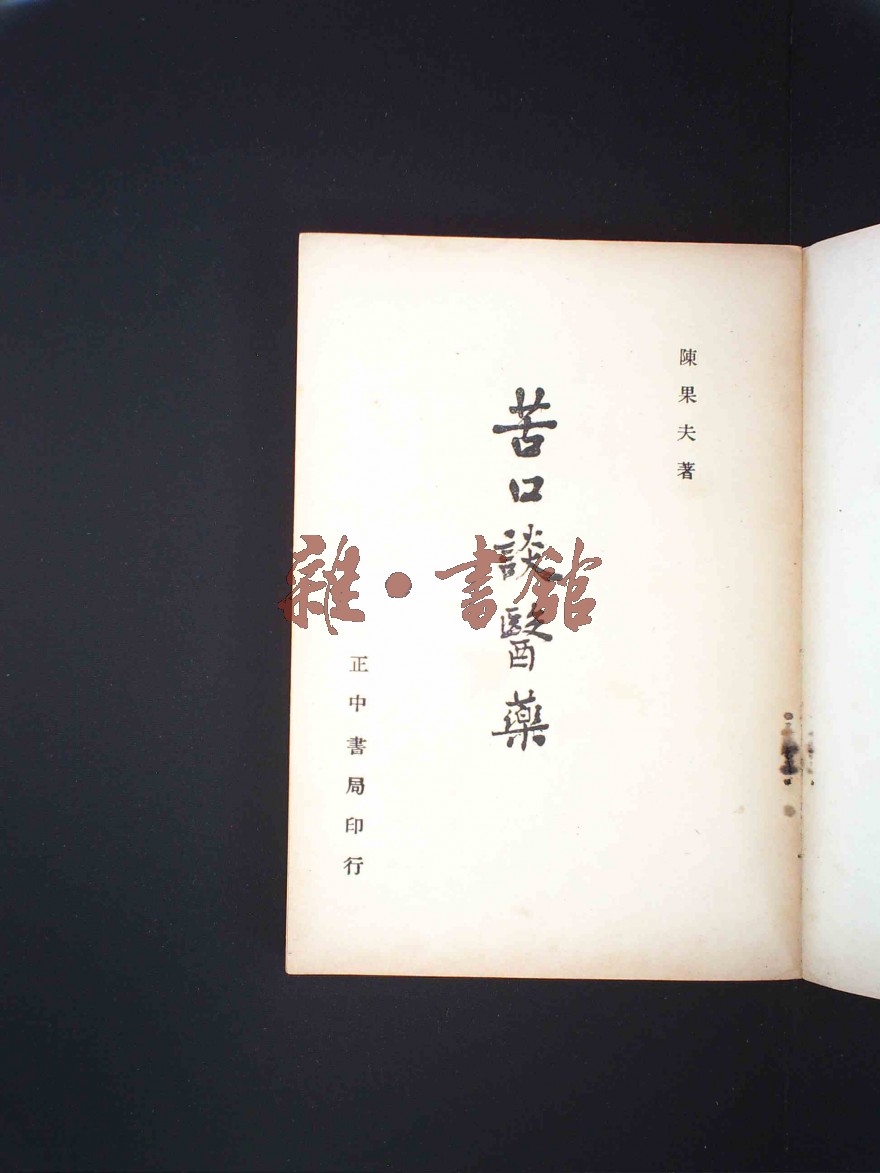 陳果夫著
苦口談醫藥
正中書局印行
雜·書館